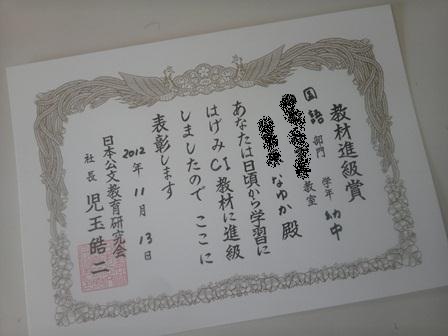 教材進級賞
国語部門 学年 幼中
教室
なゆか殿
あなたは日頃から学習に
はげみCI教材に進級
しましたので ここに
表彰します
2012年11月13日
日本公文教育研究会
社長 児玉皓二